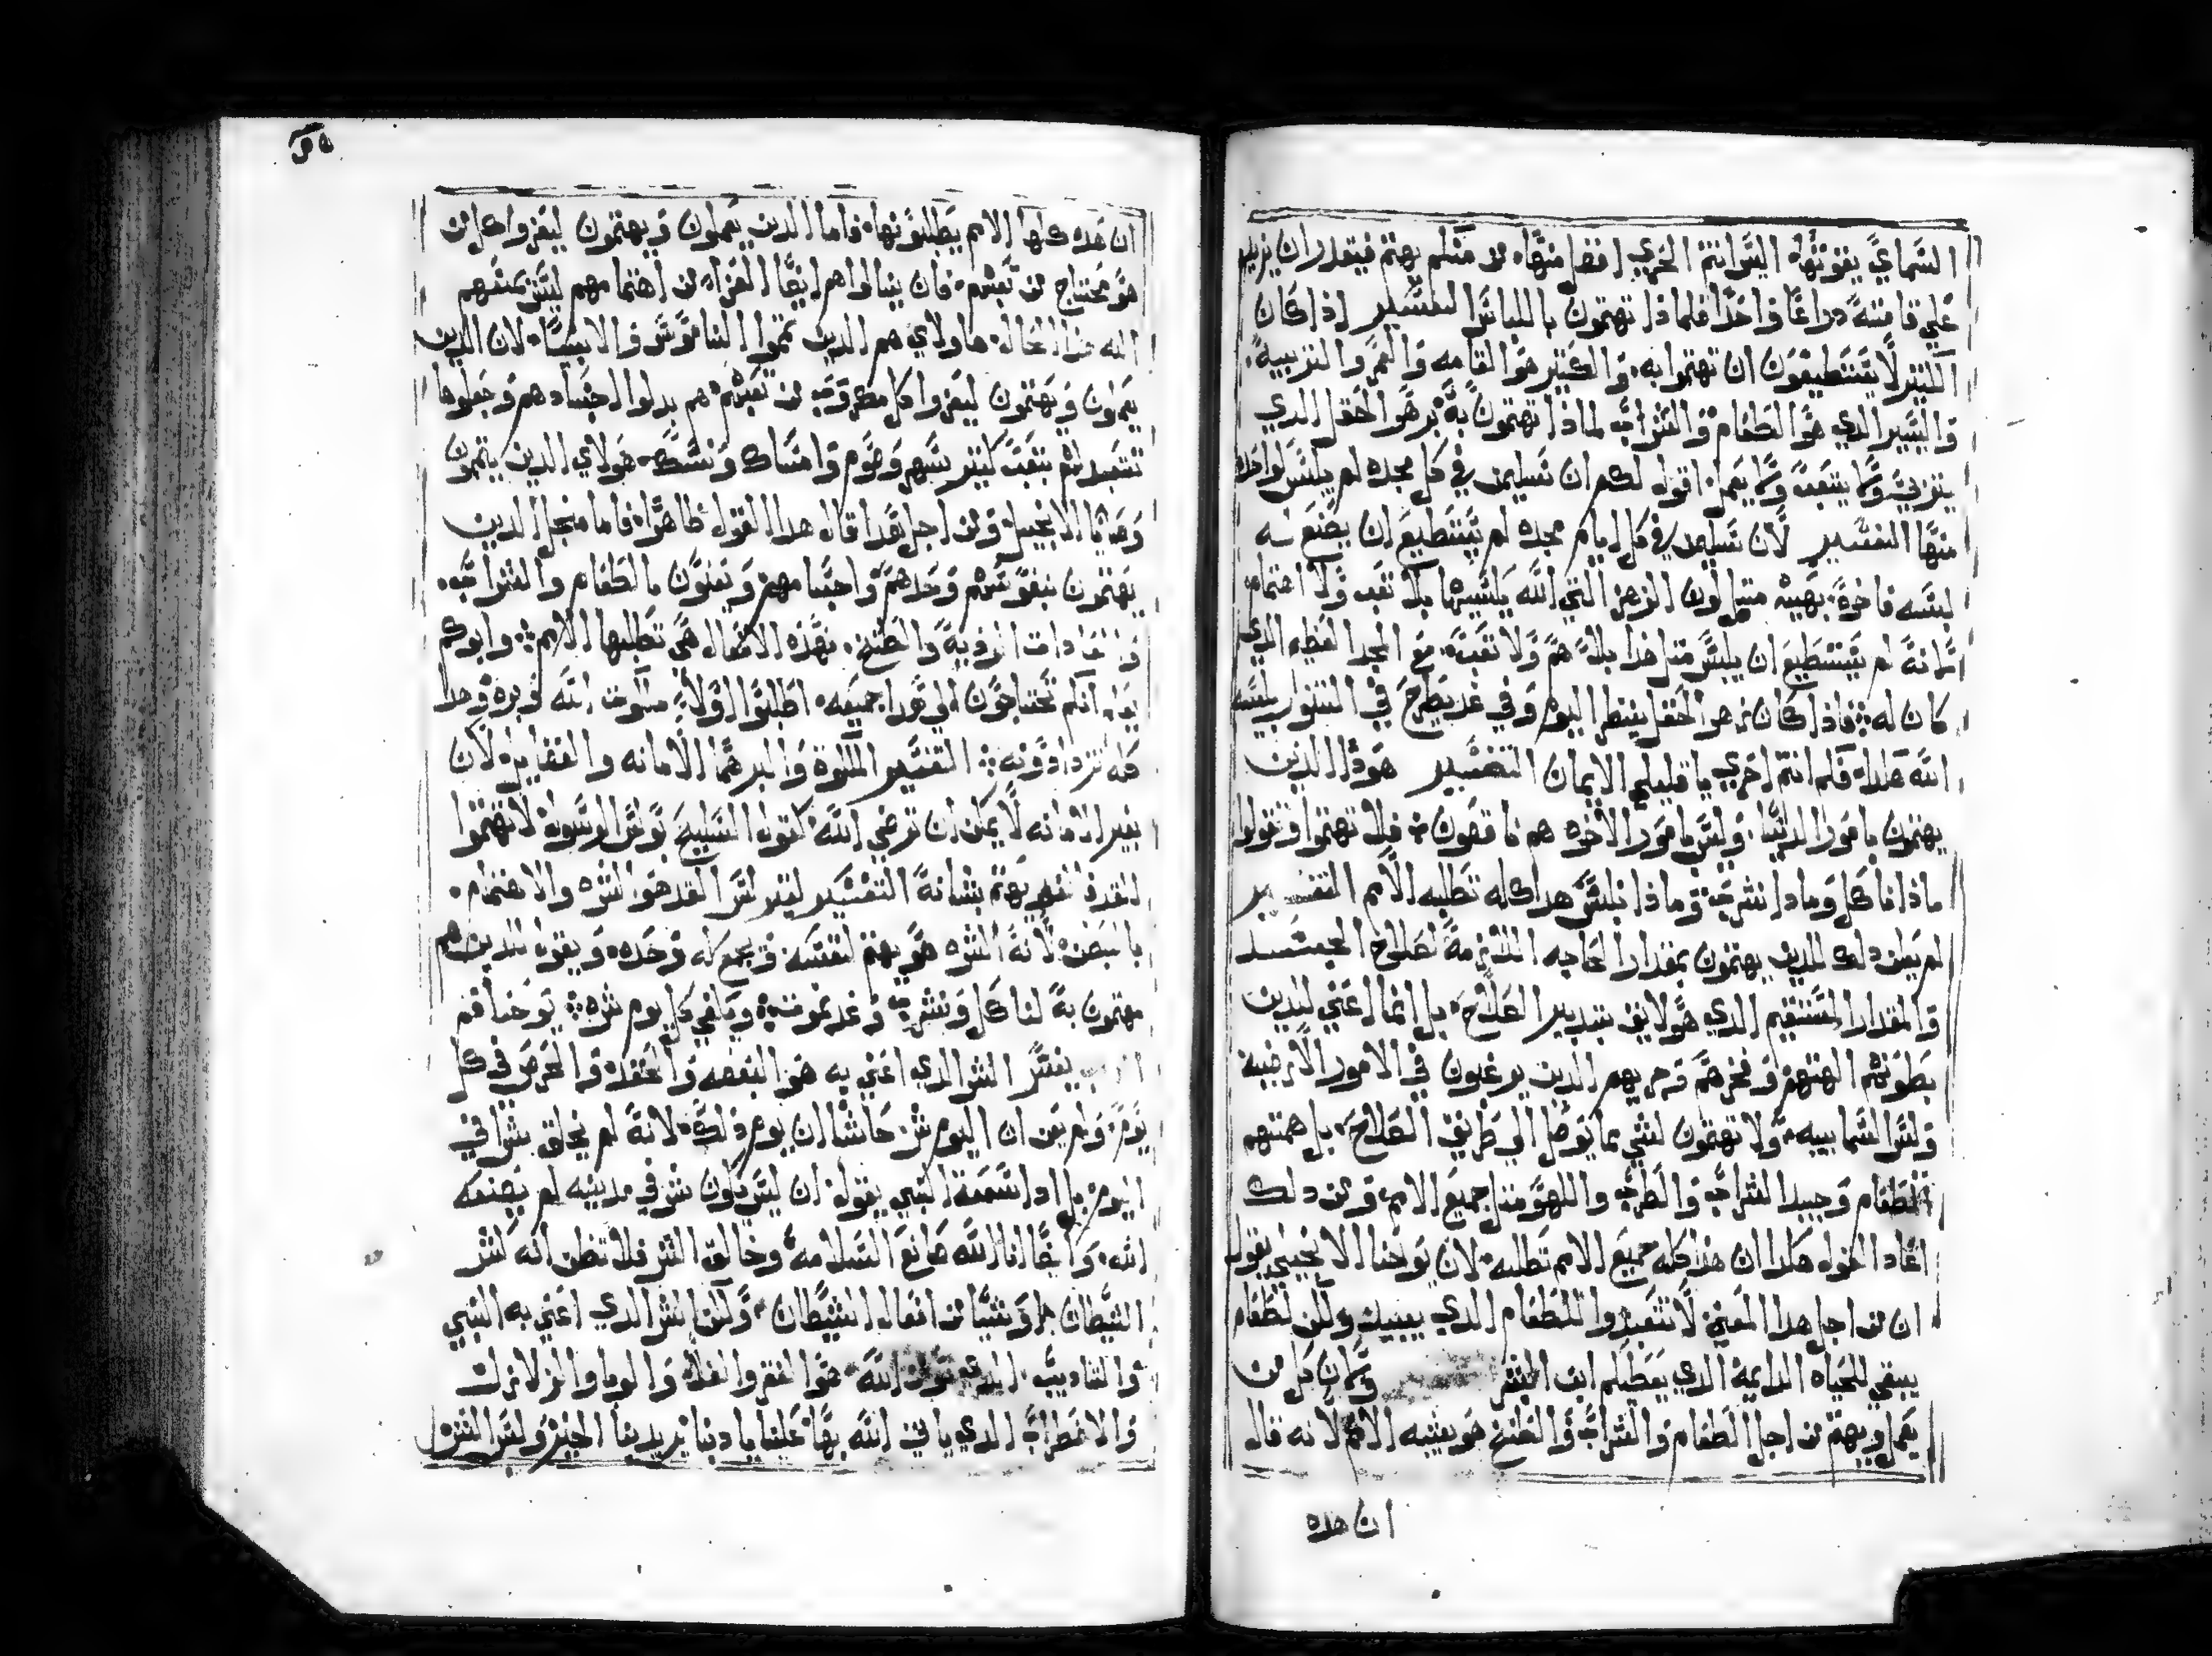 السماي يقوتها. اليس انتم احري افضل منها. من منكم يهتم فيقدر ان يزيد
علي قامته دراعا واحدا فلماذا تهتمون باللباس التفسير اذا كان
اليسير لا تستطيعون ان تهتموا به. والكتير هو القامه والعمر والتربيه.
واليسير الدي هو الطعام والشراب لماذا تهتمون به زهر الحقل الدي
يتربي ولا يتعب ولا يعمل. اقول لكم ان سليمن في كل مجده لم يلبس كواحده
منها التفسير لان سليمن في كل ايام مجده لم يستطيع ان يصنع له
لبسه فاخره بهيه متل لون الزهر التي الله يلبسها بلا تعب ولا اهتمام
لانه لم يستطيع ان يلبس متل هدا بلا هم ولا تعب. مع المجد العظيم الدي
كان له فاذا كان زهر الحقل ينظر اليوم وفي غد يطرح في التنور يلبسه
الله هكدا. فكم انتم احري يا قليلي الايمان التفسير هودا الدين
يهتمون بامور الدنيا. وليس بامور الاخره هم ناقصون فلا تهتموا وتقولوا
ماذا ناكل وماذا نشرب وماذا نلبس هدا كله تطلبه الامم التفسير
لم يعن دلك للدين يهتمون بمقدار الحاجه اللازمة لصلاح الجسد
والمقدار المستقيم الدي هو لايق بتدبير الصلاح. بل انما اعني لدين
بطونهم الهتهم وفخرهم خزيهم الدين يرغبون في الامور الارضيه
وليس السماييه. ولا تهتمون لشي مما يوصل الي طريق الصلاح. بل همتهم
الطعام وجيد الشراب والطرب واللهو متل جميع الامم. ومن دلك
اعاد القول هكدا ان هذا كله جميع الامم تطلبه. لان يوحنا الانجيلي يقول
ان من اجل هدا المعني لا تتعبدوا للطعام الدي يبيد ولكن لطعام
يبقي للحياه الدايمه الدي يعطيكم ابن البشر وكان كل من
يعمل ويهتم من اجل الطعام والشراب والطبخ هو يشبه الامم لانه قال
ان هده
ان هده كلها الامم يطلبونها. فاما الدين يعملون ويهتمون ليعزوا كل من
هو محتاج من تعبهم. فان ينالوا هم ايضا العزاه من اهتمامهم ليس يمنعهم
الله هدا الحال. هاولاي هم الدين تمموا الناموس والانبيا. لان الدين
يعملون ويهتمون ليعزوا كل مكروب من تعبهم. هم بدلوا اجسادهم وجعلوها
تتعبد لهم بتعب كتير سهر وصوم وامساك ونسك. هولاي الدين يتممون
وصايا الانجيل. ومن اجل هدا قال هدا القول ظاهرا. فاما من اجل الدين
يهتمون بنفوسهم وحدهم واجسامهم ويعنون بالطعام والشراب.
فهذه الافعال هي تطلبها الامم. وابوكم
يعلم انكم تحتاجون الي هدا جميعه. اطلبوا اولا ملكوت الله وبره وهدا
كله تزدادونه التفسير الملكوة والبر هما الامانه والفضايل. لان
بغير الامانه لا يمكن ان ترضي الله. كقول السليح بولس الرسول لا تهتموا
للغد فالغد يهتم بشانه التفسير ليس الغد هو الشره والاهتمام.
بالبغض. لانه الشره هو يهتم لنفسه. ويجمع له وحده. ويقول للدين هم
مهتمون به لناكل ونشرب وغد نموت. ويكفي كل يوم شره يوحنا فم
الدهب يفسر الشر الدي اعني به هو البغضه والحقد. والحرص في كل
يوم. ولم يعن ان اليوم شر حاشا ان يوم ذلك. لانه لم يخلق شرا في
اليوم. بل ادا سمعة النبي يقول. ان ليس يكون شر في مدينه لم يصنعه
الله. وايضا انا الله صانع السلامه وخالق الشر فلا تظن انه شر
الشيطان او شيا من افعال الشيطان. ولكن الشر الدي اعني به النبي
والتاديب الدي من الله هو الفقر والغلا والوبا والزلازل
والاضطراب الدي ياتي الله بها علينا يادبنا يريد بنا الخير وليس الشر